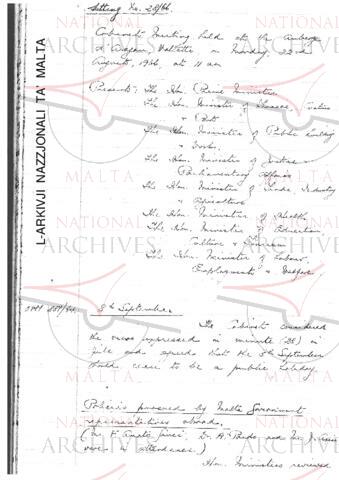 Sitting No. 28/66.
Cabinet Meeting held at the Auberge
d'Aragon Valletta on Monday, 22nd
August, 1966, at 11 am
Present: The Hon. Prime Minister
The Hon. Minister of Finance, Customs
& Port
The Hon. Minister of Public Building
& Works.
The Hon. Minister of Justice &
Parliamentary Affairs
The Hon. Minister of Trade, Industry
& Agriculture
The Hon. Minister of Health
The Hon. Minister of Education,
Culture & Tourism
The Hon. Minister of Labour,
Employment & Welfare.
8th September
The Cabinet considered
the views expressed in minute (28) in
file and agreed that the 8th September
should cease to be a public holiday.
Policies pursued by Malta Government
representatives abroad.
(Mr. F. Amato Gauci, Dr. A. Pardo and Mr. J.
were in attendance.)
Hon. Ministers reviewed
L-ARKIVJI NAZZJONALI TA' MALTA
NATIONAL
ARCHIVES
MALTA